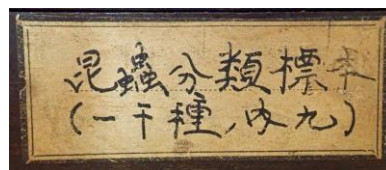 昆蟲分類標本
(一千種ノ内九)